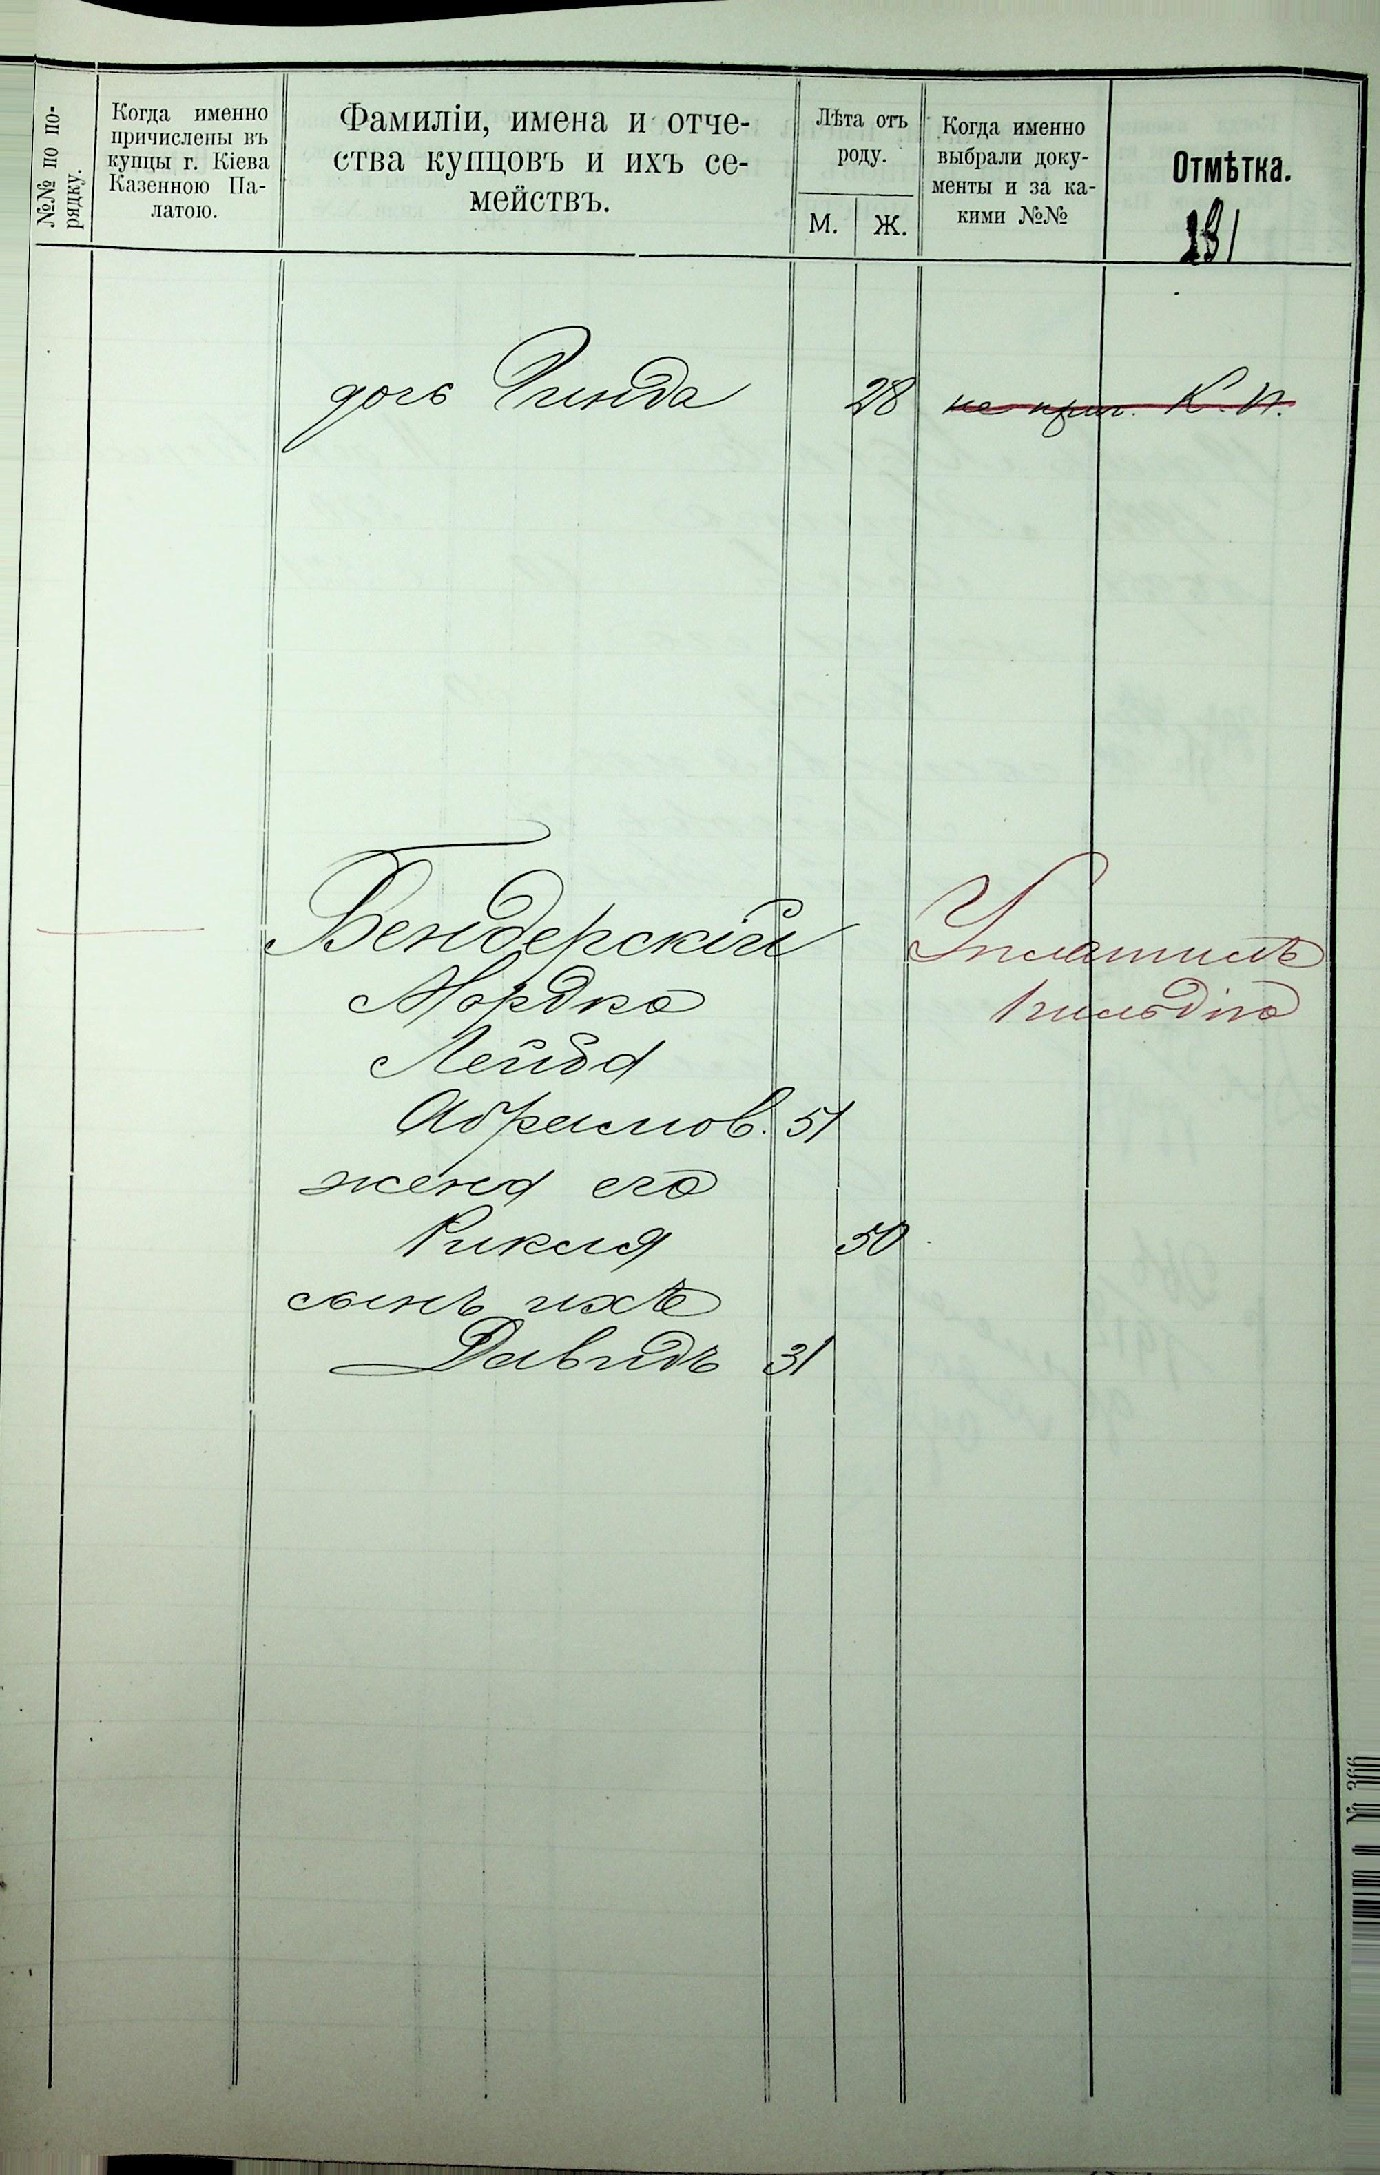 №№ по по-
рядку.
Когда именно
причислены въ
купцы г. Кіева
Казенною Па-
латою.
Фамиліи, имена и отче-
ства купцовъ и ихъ се-
мействъ.
Лѣта отъ
роду.
М. Ж.
Когда именно
выбрали доку-
менты и за ка-
кими №№
Отмѣтка.
231
дочь Гинда 28 не прич. К. П.
Бендерскій Уплатилъ
Мордко гильдію
Лейба
Абрамов. 51
жена его
Рикля 50
сынъ ихъ
Давидъ 31
№ 366